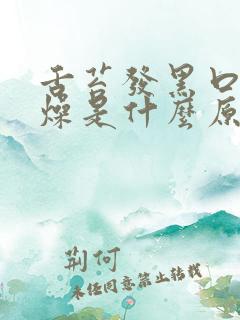 舌苔發黑口
燥是什麼原
荆何
未经同意禁止转载